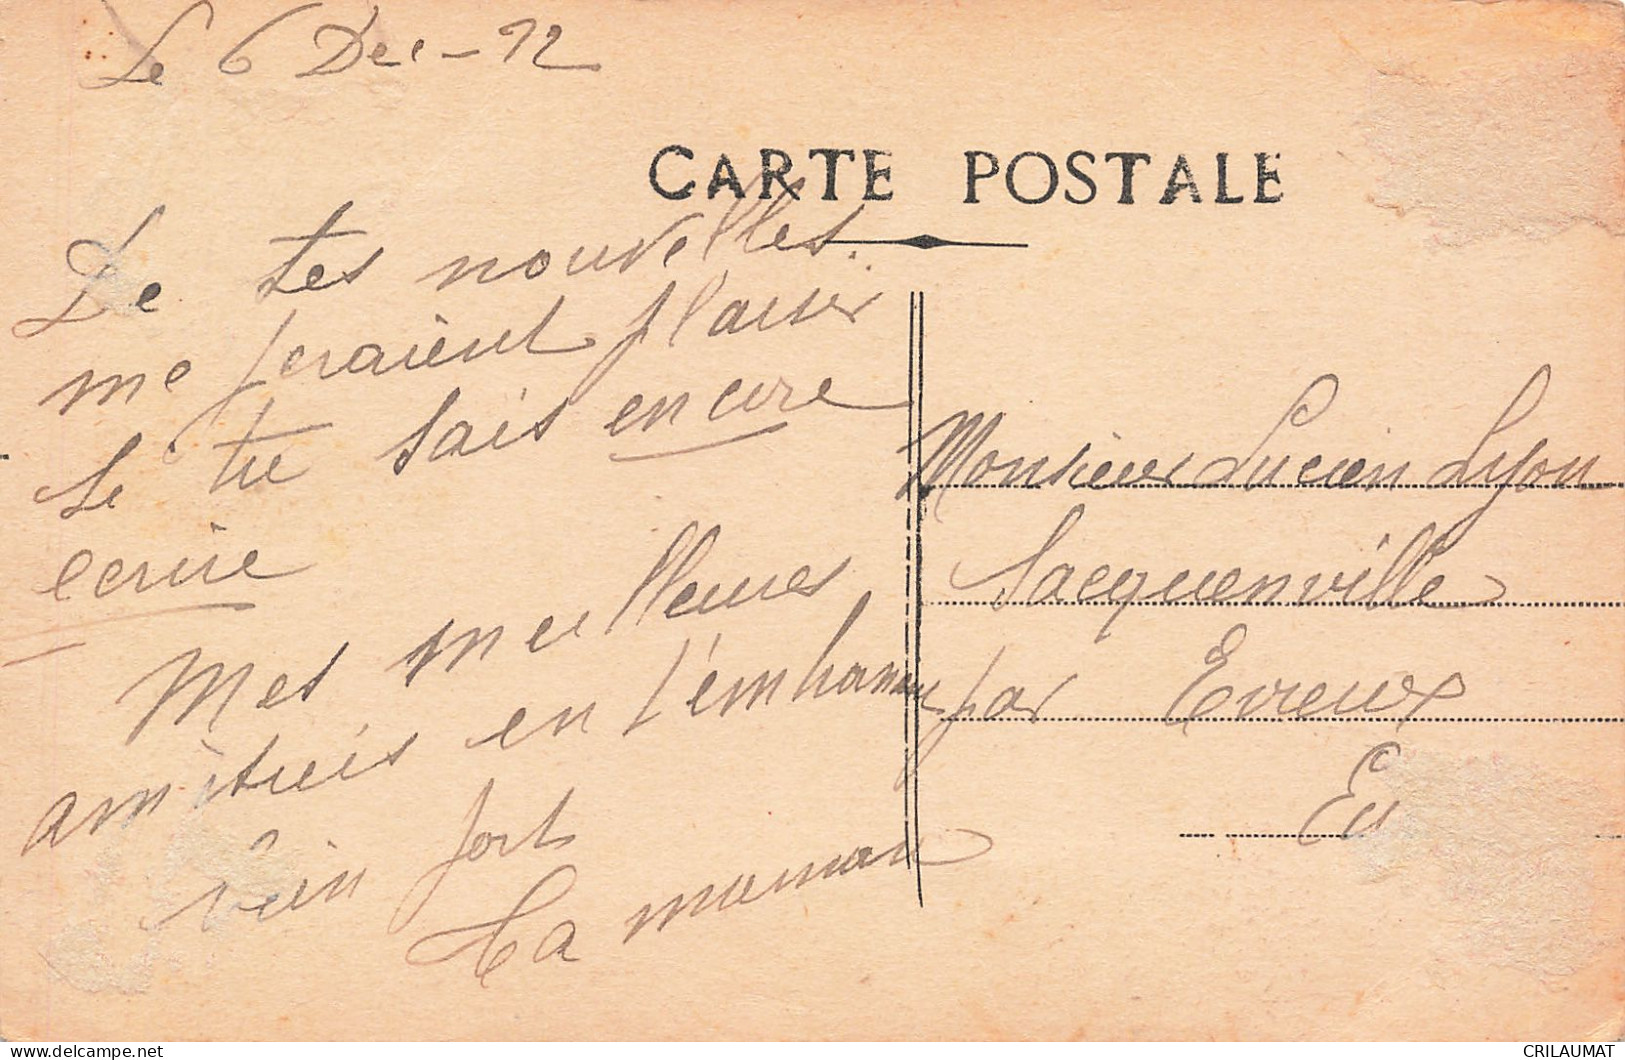 Le 6 Dec - 12
CARTE POSTALE
De tes nouvelles
me feraient plaisir
Se tu sais encore
ecrire
Mes meilleures
amitués en t'embrassant
bien fort
Ta maman
Monsieur Lucien Lyon
Sacquenville
par Evreux
Eu
CRILAUMAT